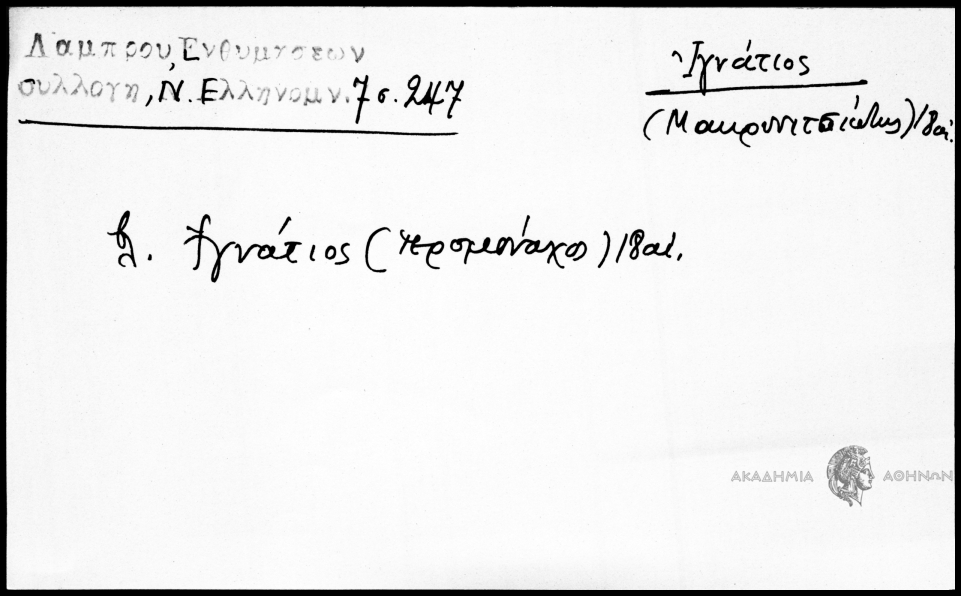 Λαμπρου, Ενθυμησεων
συλλογη, Ν. Ελληνομν. 7 σ. 247
Ἰγνάτιος
(Μακρυνιτσιώτης) 18 αἰ.
βλ. Ἰγνάτιος (ἱερομόναχος) 18 αἰ.
ΑΚΑΔΗΜΙΑ ΑΘΗΝΩΝ